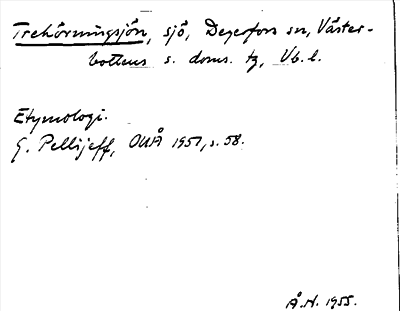 Trehörningsjön, sjö, Degerfors sn, Väster-
bottens s. doms. tg, Vb. l.
Etymologi.
G. Pellijeff, OUÅ 1951, s. 58.
Å.N. 1955.